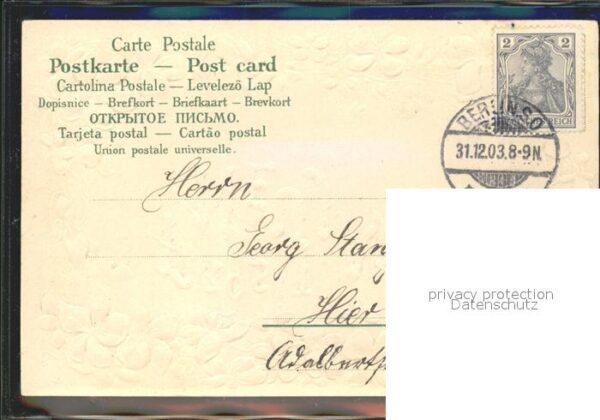 Carte Postale
Postkarte — Post card
Cartolina Postale — Levelező Lap
Dopisnice — Brefkort — Briefkaart — Brevkort
ОТКРЫТОЕ ПИСЬМО.
Tarjeta postal — Cartão postal
Union postale universelle.
2 2
REICH
BERLIN SO
31.12.03.8-9N.
Herrn
Georg Stan
Hier
Adalbertst
privacy protection
Datenschutz